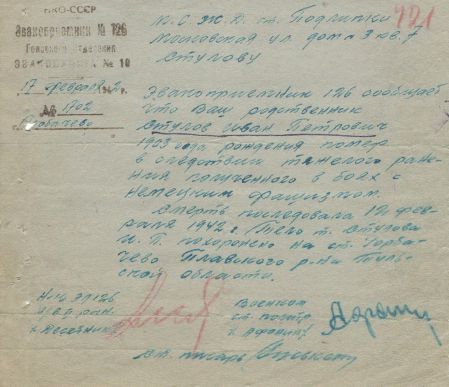 НКО-СССР
Эвакоприемник № 126
ЭВАКОПУНКТ № 10
17 февраля 1942 г.
№ 1702
Горбачево
М.С.Ж.Д. ст. Подлипки
Московская ул. дом 3 кв. 7
Стулову
721
Эвакоприемник 126 сообщает
что Ваш родственник
Стулов Иван Петрович
1903 года рождения помер
в следствии тяжелого ране-
ния полученного в боях с
немецким фашизмом.
Смерть последовала 12 фев-
раля 1942 г. Тело т. Стулова
И. П. похоронено на ст. Горба-
чево Плавского р-на Туль-
ской области.
Военком
ст. политр.